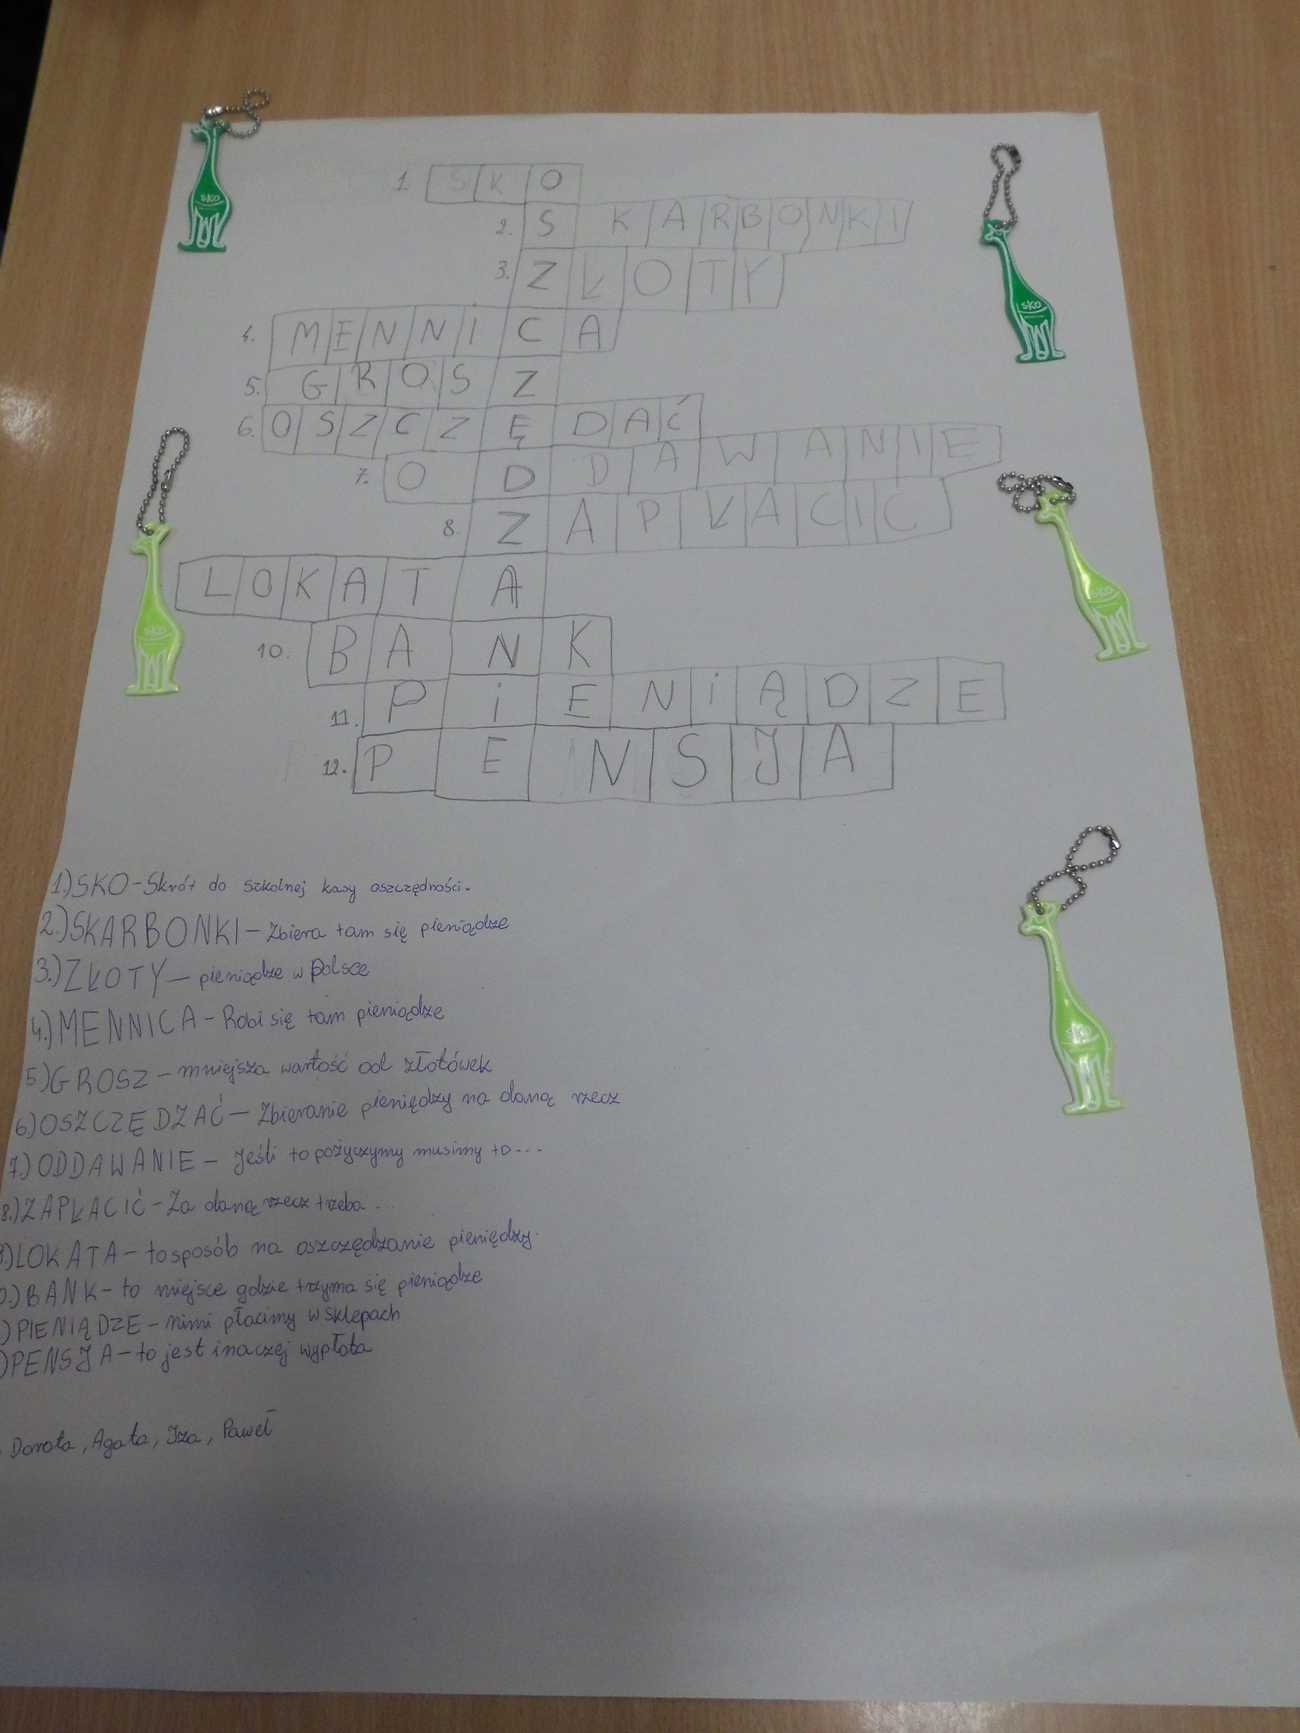 1. SKO
2. SKARBONKI
3. ZŁOTY
4. MENNiCA
5. GROSZ
6. OSZCZĘDAĆ
7. ODDAWANIE
8. ZAPŁACIĆ
LOKATA
10. BANK
11. PiENiĄDZE
12. PENSJA
1.) SKO - Skrót do szkolnej kasy oszczędności.
2.) SKARBONKI - Zbiera tam się pieniądze
3.) ZŁOTY - pieniądze w Polsce
4.) MENNICA - Robi się tam pieniądze
5.) GROSZ - mniejsza wartość od złotówek
6.) OSZCZĘDZAĆ - Zbieranie pieniędzy na daną rzecz
7.) ODDAWANIE - Jeśli to pożyczymy musimy to...
8.) ZAPŁACIĆ - Za daną rzecz trzeba...
9.) LOKATA - to sposób na oszczędzanie pieniędzy.
0.) BANK - to miejsce gdzie trzyma się pieniądze
) PIENIĄDZE - nimi płacimy w sklepach
) PENSJA - to jest inaczej wypłata
Dorota, Agata, Iza, Paweł
SKO
SKO
SKO
SKO
SKO